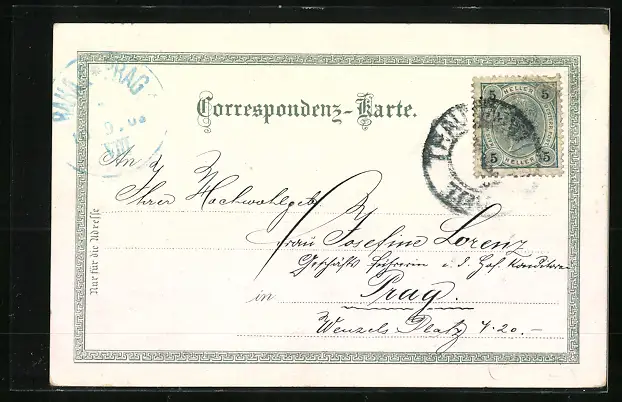 PRAG
Correspondenz-Karte.
5 HELLER 5
5 HELLER 5
An
Ihrer Hochwohlgeb
Frau Josefine Lorenz
Geschäfts Führerin i. d. Hof Konditorei
in Prag.
Wenzels Platz 4.20.-
Nur für die Adresse